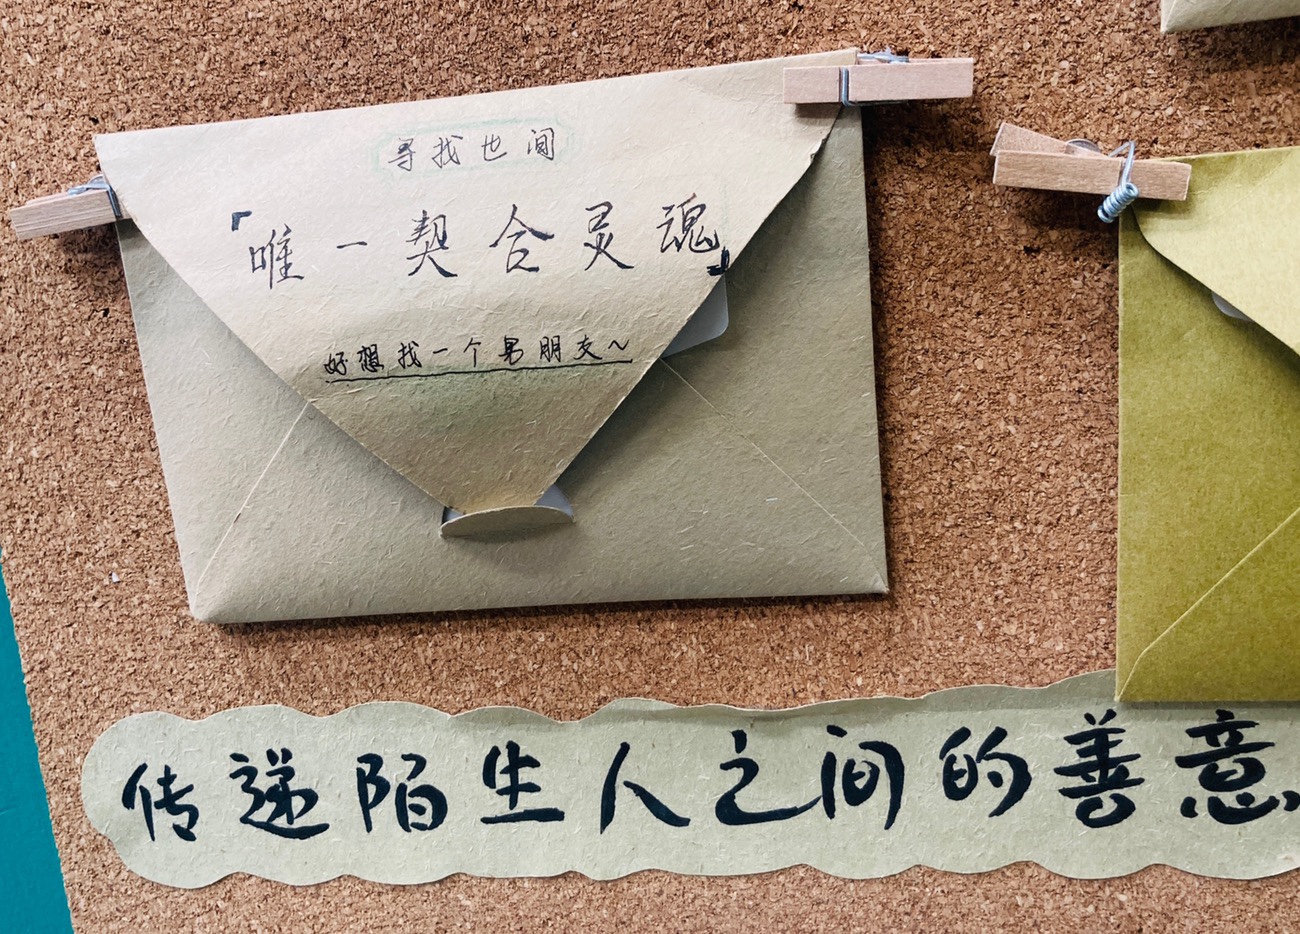 寻找世间
「唯一契合灵魂」
好想找一个男朋友~
传递陌生人之间的善意